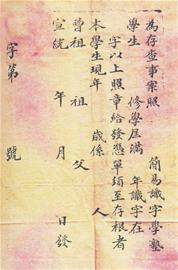 為存查事案照 簡易識字學塾
學生 修學屆滿 年識字在
字以上照章給發憑單須至存根者
本學生現年 歲係 人
曾祖 祖 父
宣統 年 月 日發
字第 號